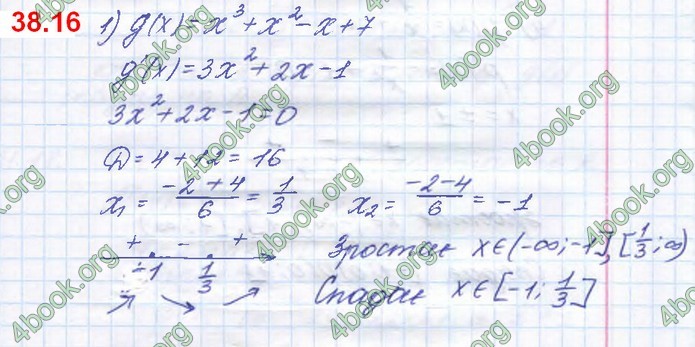 38.16
1) g(x) = x³ + x² - x + 7
g'(x) = 3x² + 2x - 1
3x² + 2x - 1 = 0
D = 4 + 12 = 16
x₁ = (-2 + 4)/6 = 1/3    x₂ = (-2 - 4)/6 = -1
+ - +
-1 1/3
Зростає x ∈ (-∞; -1], [1/3; ∞)
Спадає x ∈ [-1; 1/3]
4book.org
4book.org
4book.org
4book.org
4book.org
4book.org
4book.org
4book.org
4book.org